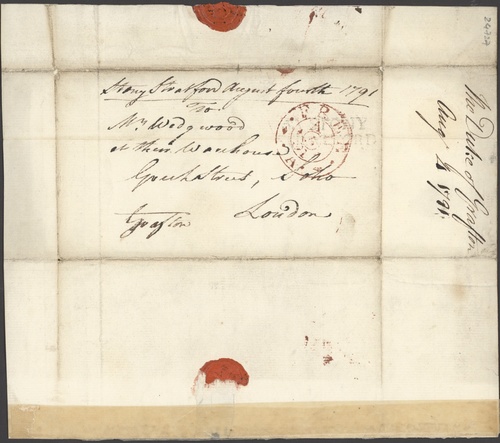 Stony Stratford August fourth 1791
To
Mr Wedgwood
at their Warehouse
Greek Street, Soho
London
Grafton
FREE
STONY
The Duke of Grafton
Aug 4 1791.